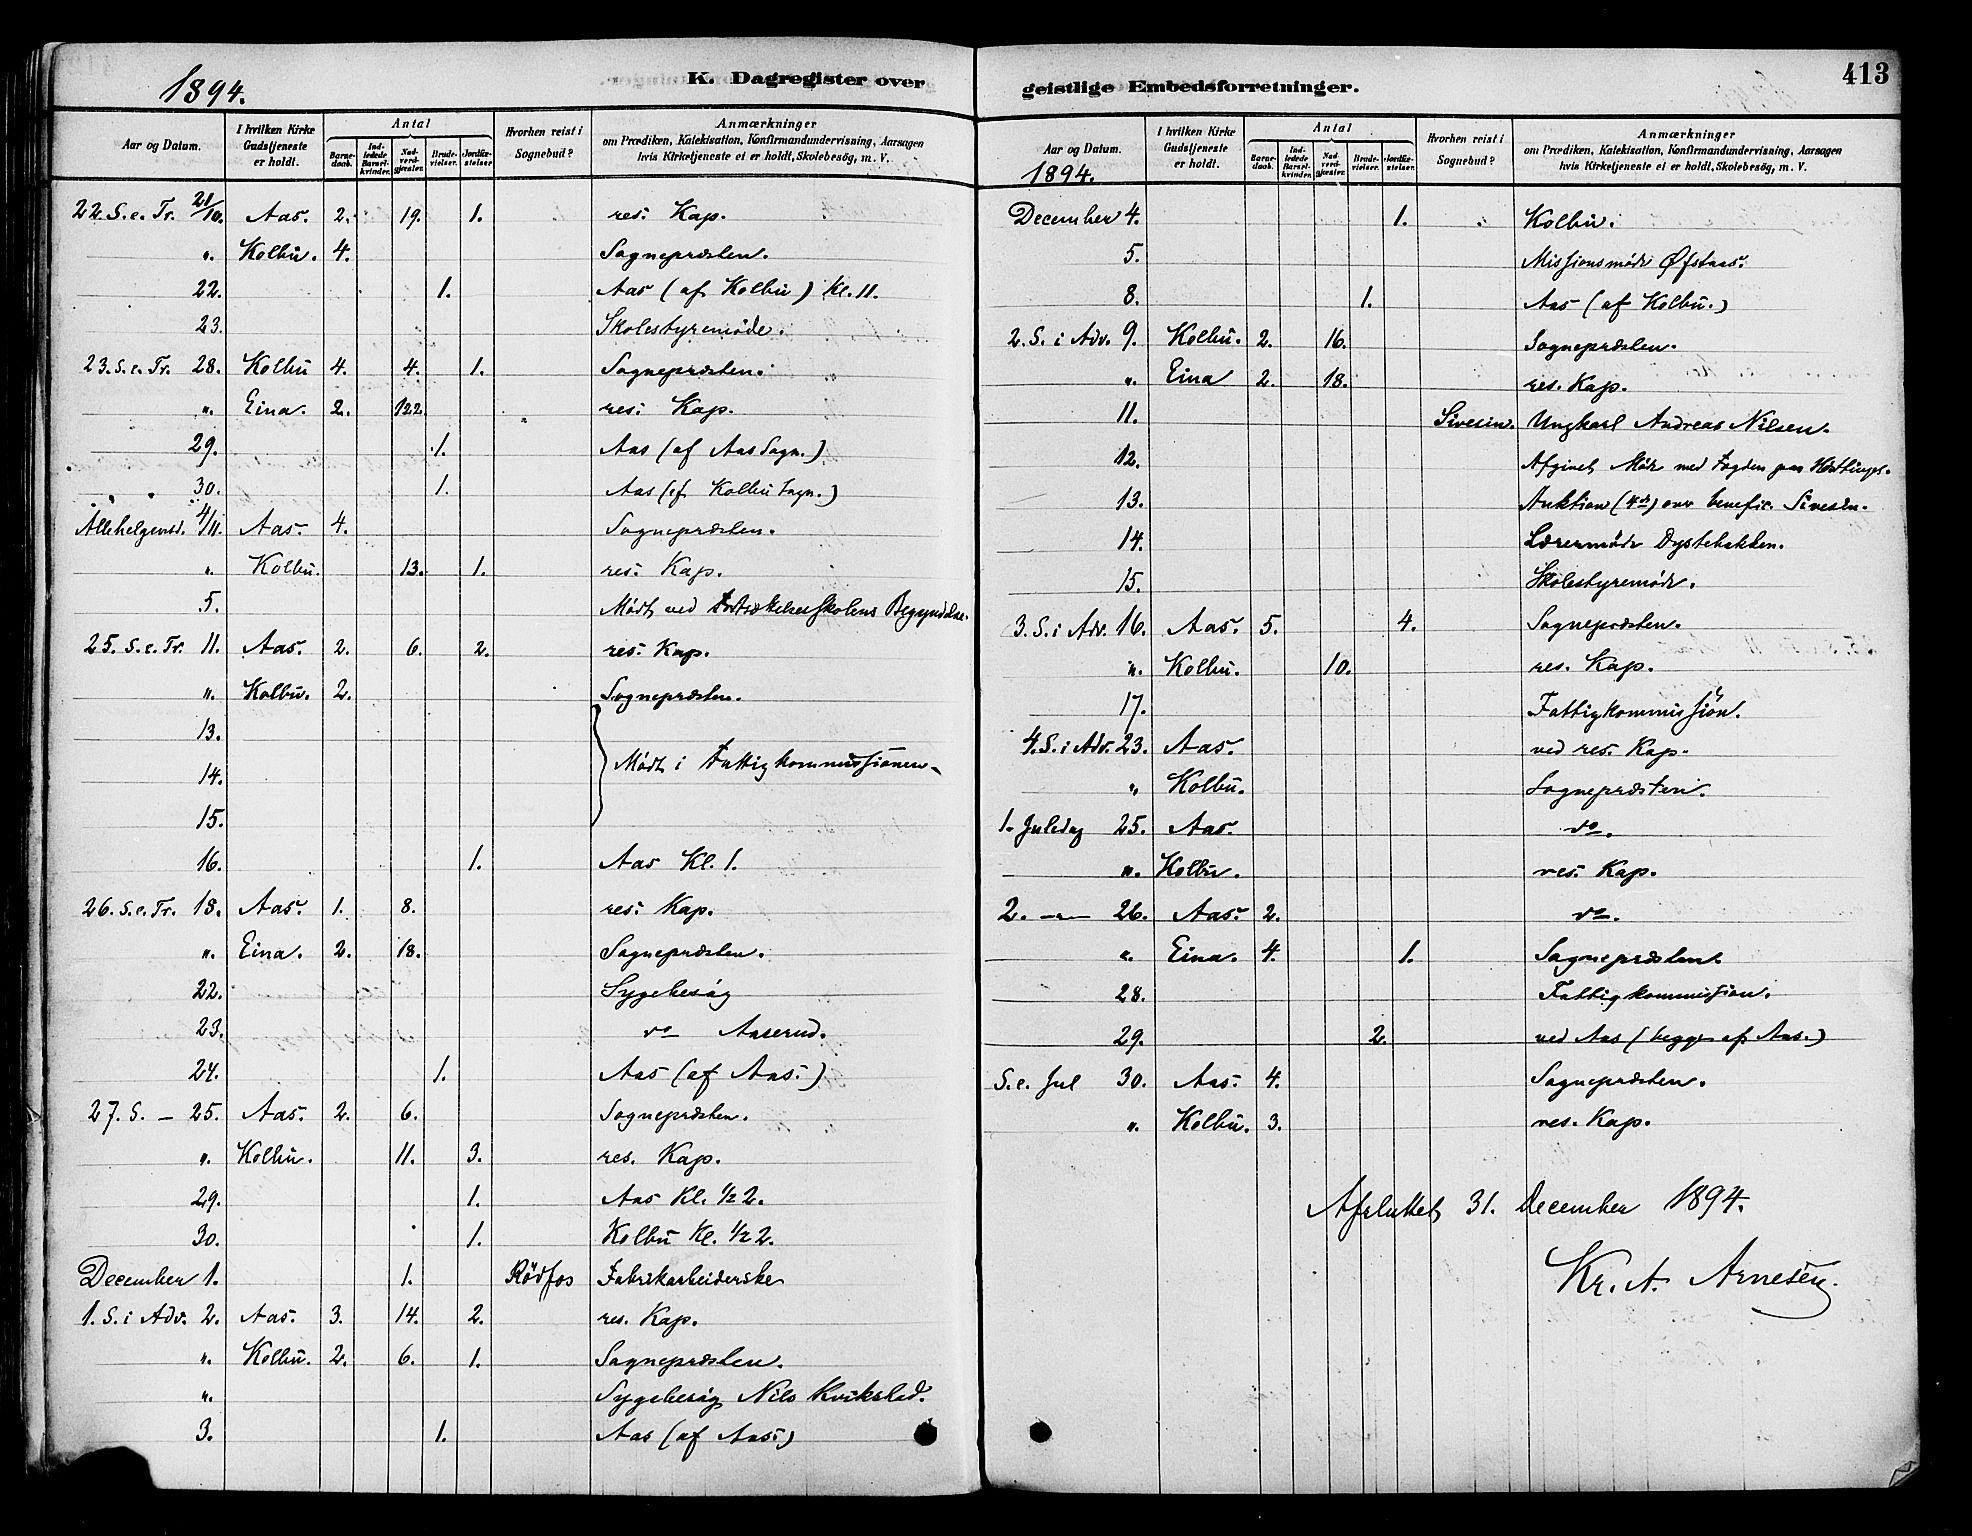 1894.
K. Dagregister over
Aar og Datum. I hvilken Kirke Gudstjeneste er holdt. Antal Barnedaab. Indledede Barselkvinder. Nadverdgjester. Brudevielser. Jordfæstelser Hvorhen reist i Sognebud? Anmærkninger om Prædiken, Katekisation, Konfirmandundervisning, Aarsagen hvis Kirketjeneste ei er holdt, Skolebesøg, m. V.
22. S. e. Tr. 21/10. Aas. 2. 19. 1. res. Kap.
". Kolbu. 4. Sognepræsten.
22. 1. Aas (af Kolbu) Kl. 11.
23. Skolestyremøde.
23. S. e. Tr. 28. Kolbu 4. 4. 1. Sognepræsten.
". Eina. 2. 122. res. Kap.
29. 1. Aas (af Aas Sogn.)
30. 1. Aas (af Kolbu Sogn.)
Allehelgensd. 4/11. Aas. 4. Sognepræsten.
". Kolbu. 13. 1. res. Kap.
5. Mødt ved Begyndelse.
25. S. e. Tr. 11. Aas. 2. 6. 2. res. Kap.
". Kolbu. 2. Sognepræsten.
13.
Mødt i Fattigkommissionen.
14.
15.
16. 1. Aas Kl. 1.
26. S. e. Tr. 18. Aas. 1. 8. res. Kap.
". Eina. 2. 18. Sognepræsten.
22. Sygebesøg
23. do Aaserud.
24. 1. Aas (af Aas.)
27. S. — 25. Aas. 2. 6. Sognepræsten.
". Kolbu. 11. 3. res. Kap.
29. 1. Aas Kl. 1/2 2.
30. 1. Kolbu Kl. 1/2 2.
December 1. 1. Rödfos Fabrikarbeiderske
1. S. i Adv. 2. Aas. 3. 14. 2. res. Kap.
". Kolbu. 2. 6. 1. Sognepræsten.
". Sygebesøg Nils Kvikstad.
3. 1. Aas (af Aas.)
geistlige Embedsforretninger.
413
Aar og Datum. I hvilken Kirke Gudstjeneste er holdt. Antal Barnedaab. Indledede Barselkvinder. Nadverdgjester. Brudevielser. Jordfæstelser Hvorhen reist i Sognebud? Anmærkninger om Prædiken, Katekisation, Konfirmandundervisning, Aarsagen hvis Kirketjeneste ei er holdt, Skolebesøg, m. V.
1894.
December 4. 1. Kolbu.
5. Missionsmøde Øfstaas.
8. 1. Aas (af Kolbu.)
2. S. i Adv. 9. Kolbu. 2. 16. Sognepræsten.
". Eina 2. 18. res. Kap.
11. Sivesin. Ungkarl Andreas Nilsen.
12. Afgivet Møde med Fogden paa
13. Auktion over benefic. Sivesin.
14. Lærermøde Dystebakken.
15. Skolestyremøde.
3. S. i Adv. 16. Aas. 5. 4. Sognepræsten.
". Kolbu. 10. res. Kap.
17. Fattigkommission.
4. S. i Adv. 23. Aas. ved res. Kap.
". Kolbu. Sognepræsten.
1. Juledag 25. Aas. do.
". Kolbu. res. Kap.
2. —"— 26. Aas. 2. do.
". Eina. 4. 1. Sognepræsten.
28. Fattigkommission.
29. 2. ved Aas (begge af Aas.)
S. e. Jul 30. Aas. 4. Sognepræsten.
". Kolbu. 3. res. Kap.
Afsluttet 31. December 1894.
Kr. A. Arnesen.